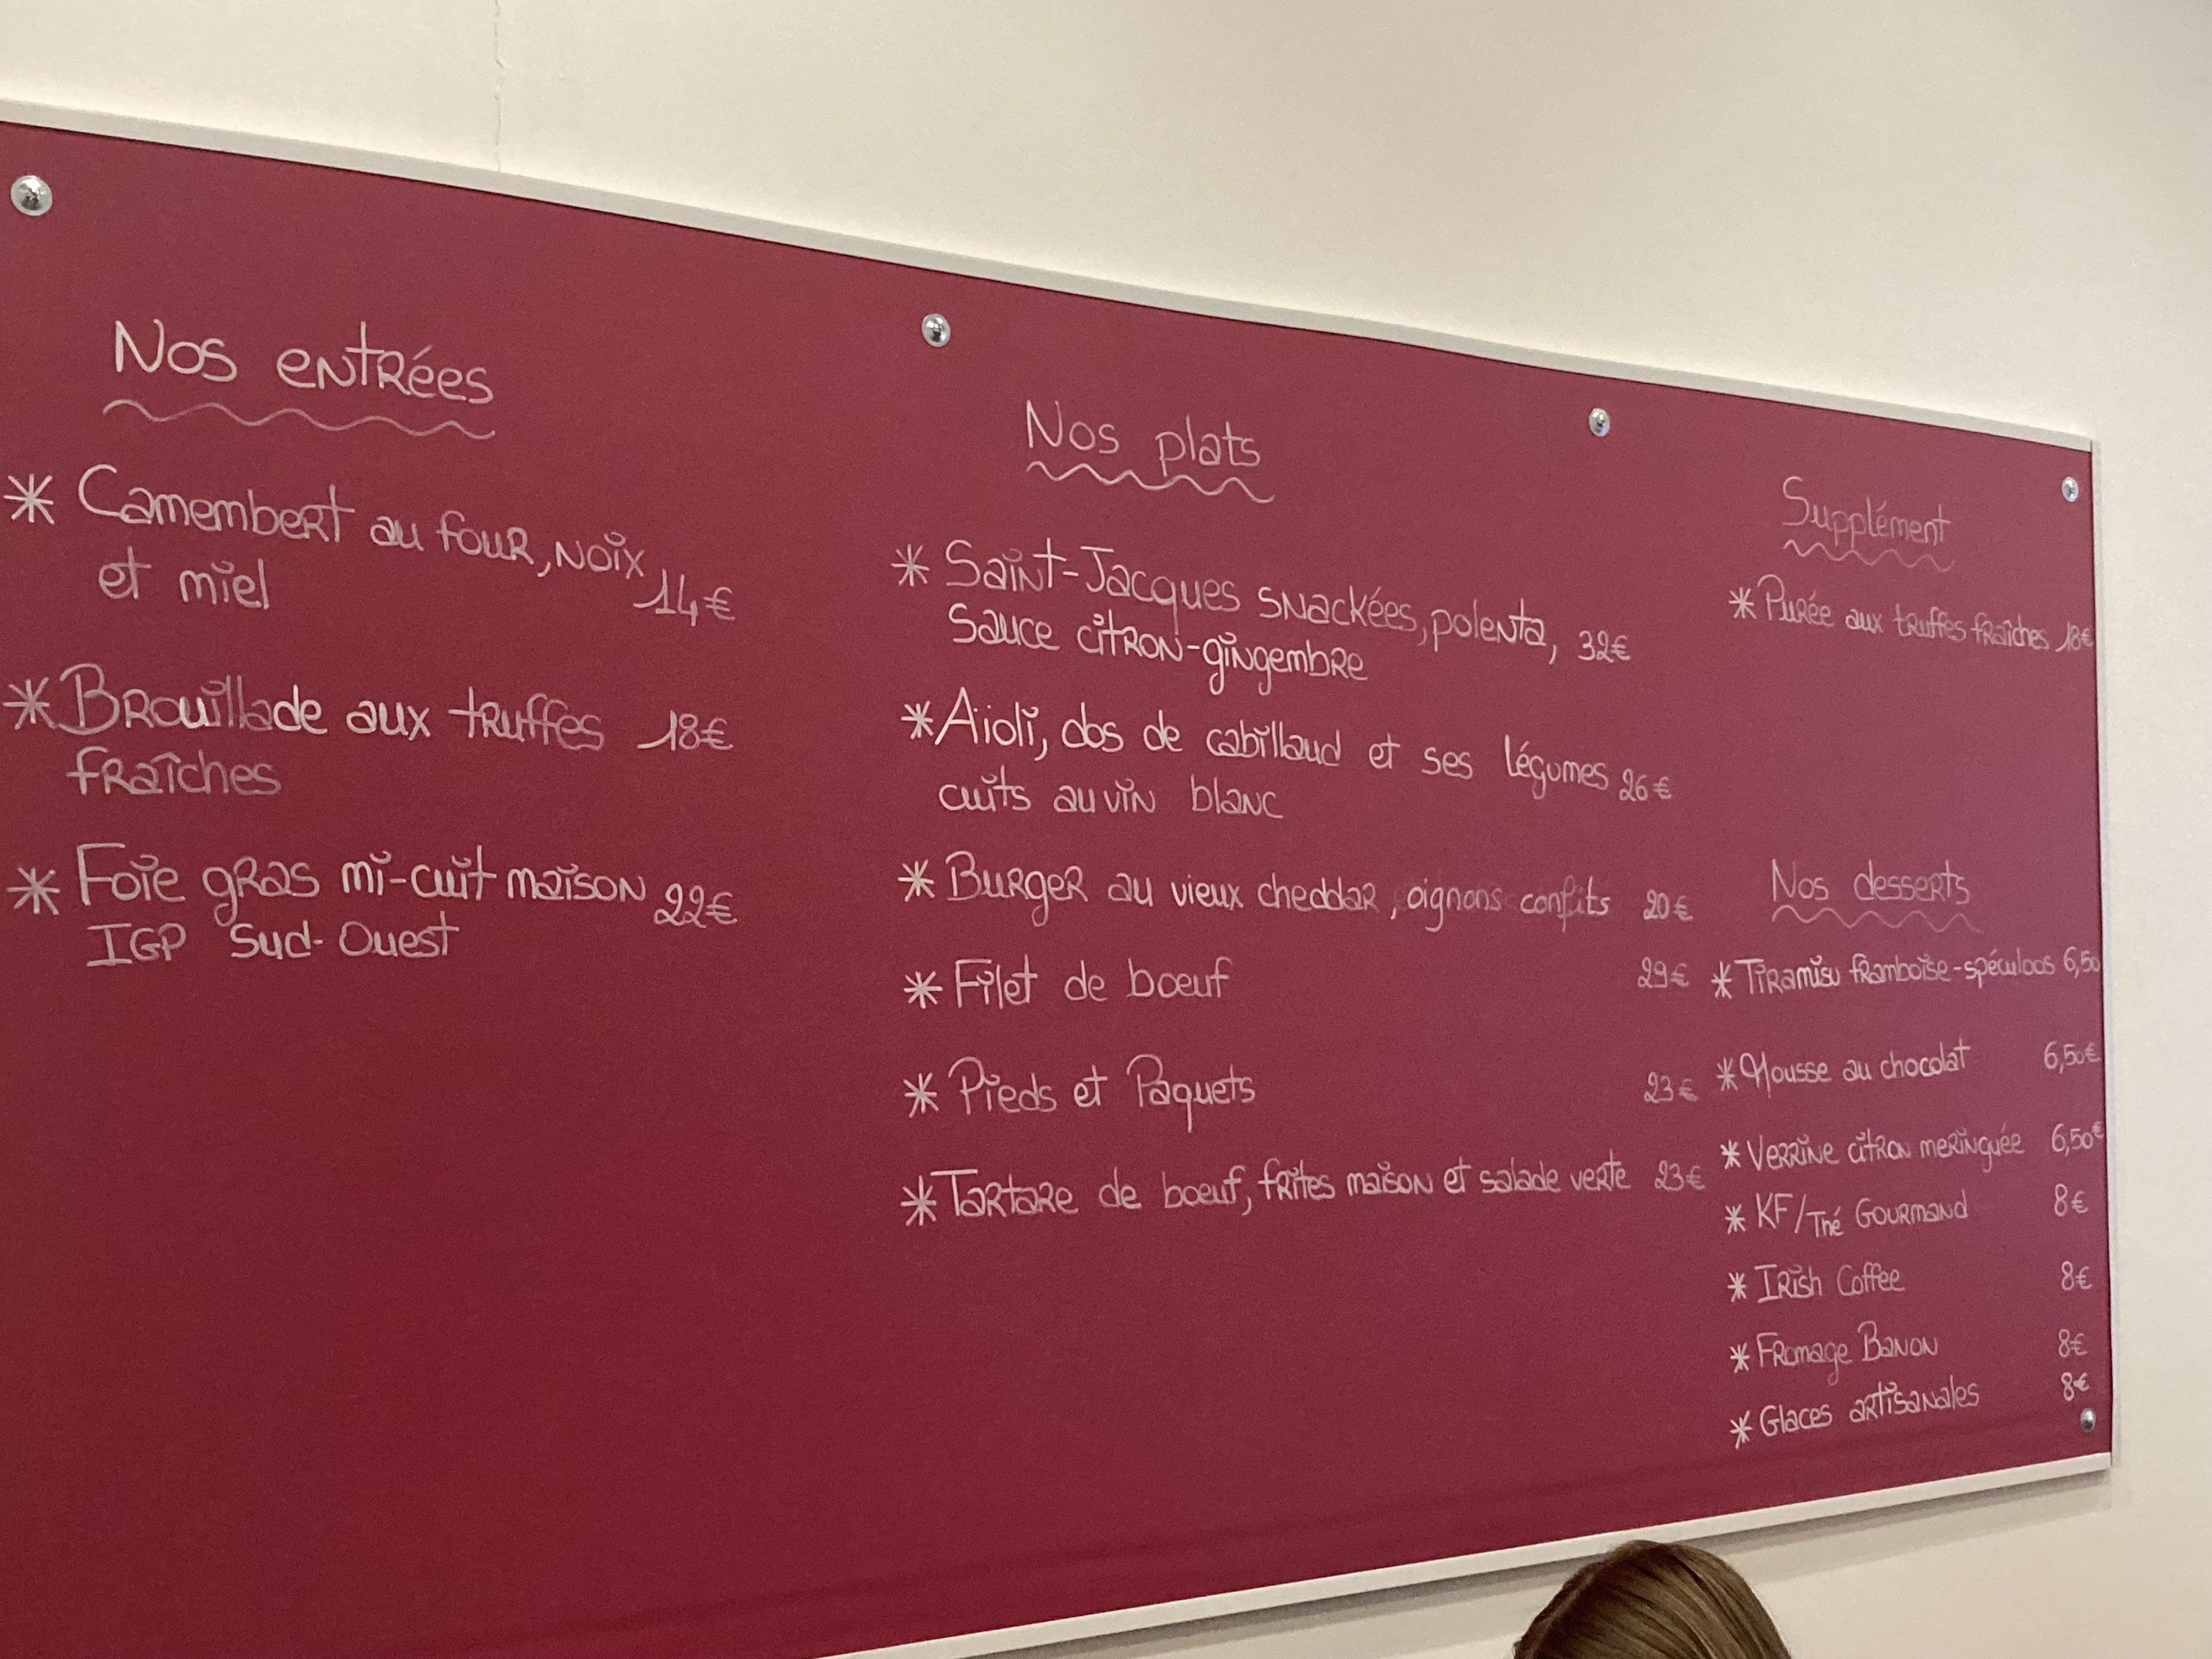 Nos entrées
* Camembert au four, noix
et miel 14€
* Brouillade aux truffes 18€
fraîches
* Foie gras mi-cuit maison 22€
IGP Sud-Ouest
Nos plats
* Saint-Jacques snackées, polenta, 32€
Sauce citron-gingembre
* Aïoli, dos de cabillaud et ses légumes 26€
cuits au vin blanc
* Burger au vieux cheddar, oignons confits 20€
* Filet de bœuf 29€
* Pieds et Paquets 23€
* Tartare de bœuf, frites maison et salade verte 23€
Supplément
* Purée aux truffes fraîches 18€
Nos desserts
* Tiramisu framboise-spéculoos 6,50
* Mousse au chocolat 6,50€
* Verrine citron meringuée 6,50€
* KF/Thé Gourmand 8€
* Irish Coffee 8€
* Fromage Banon 8€
* Glaces artisanales 8€